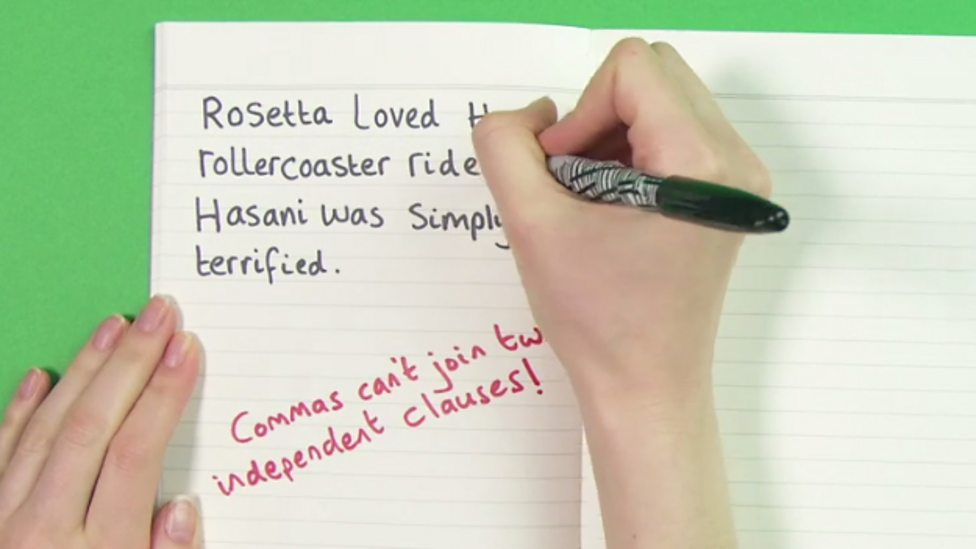 Rosetta Loved
rollercoaster ride
Hasani was Simply
terrified.
Commas can't join
independent clauses!